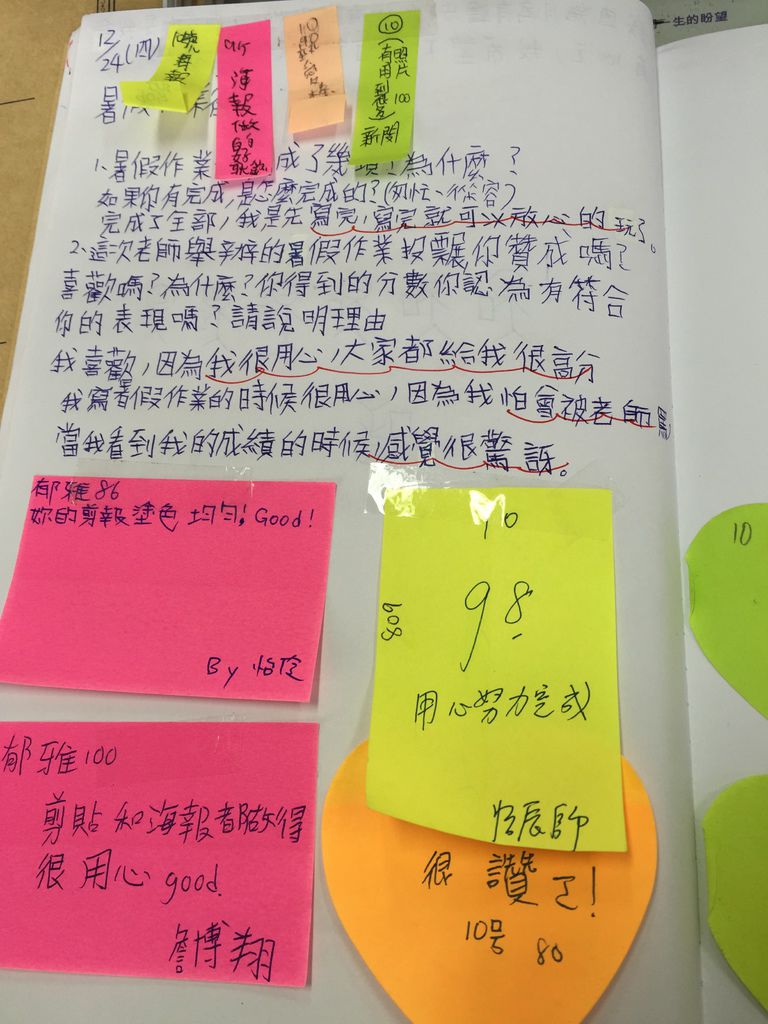 生的盼望
12/24(四)
10
(有照片
用到報色
100
新聞
海報
做
的
好
1、暑假作業 成了幾項?為什麼?
如果你有完成,是怎麼完成的?(匆忙、從容)
完成了全部,我是先寫完,寫完就可以放心的玩了。
2、這次老師舉辦的暑假作業投票你贊成嗎?
喜歡嗎?為什麼?你得到的分數你認為有符合
你的表現嗎?請說明理由
我喜歡,因為我很用心,大家都給我很高分
我寫暑假作業的時候很用心,因為我怕會被老師罵
當我看到我的成績的時候,感覺很驚訝。
郁雅86
妳的剪報塗色均勻!Good!
By 怡伶
10
98
809
用心努力完成
師
郁雅100
剪貼和海報都做得
很用心good.
詹博翔
很讚了!
10号 80
10